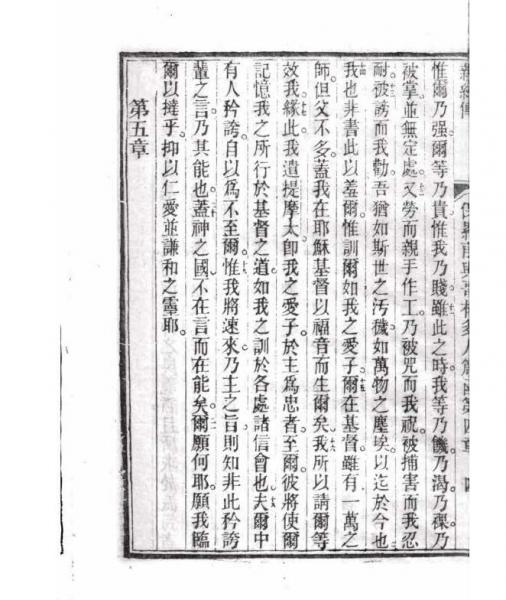 第四章
惟爾乃强爾等乃貴惟我乃賤雖此之時我等乃饑乃渴乃祼乃
被掌並無定處。又勞而親手作工。乃被咒而我祝。被捕害而我忍
耐。被謗而我勸。吾猶如斯世之汚穢。如萬物之塵埃。以迄於今也
我也非書此以羞爾。惟訓爾如我之愛子。爾在基督雖有一萬之
師。但父不多。蓋我在耶穌基督以福音而生爾矣。我所以請爾等
效我。緣此我遣提摩太。卽我之愛子。於主爲忠者。至爾。彼將使爾
記憶我之所行於基督之道。如我之訓於各處諸信會也。夫爾中
有人矜誇。自以爲不至爾。惟我將速來。乃主之旨。則知非此矜誇
輩之言。乃其能也。蓋神之國不在言而在能矣。爾願何耶。願我臨
爾以撻乎。抑以仁愛並謙和之靈耶。
第五章